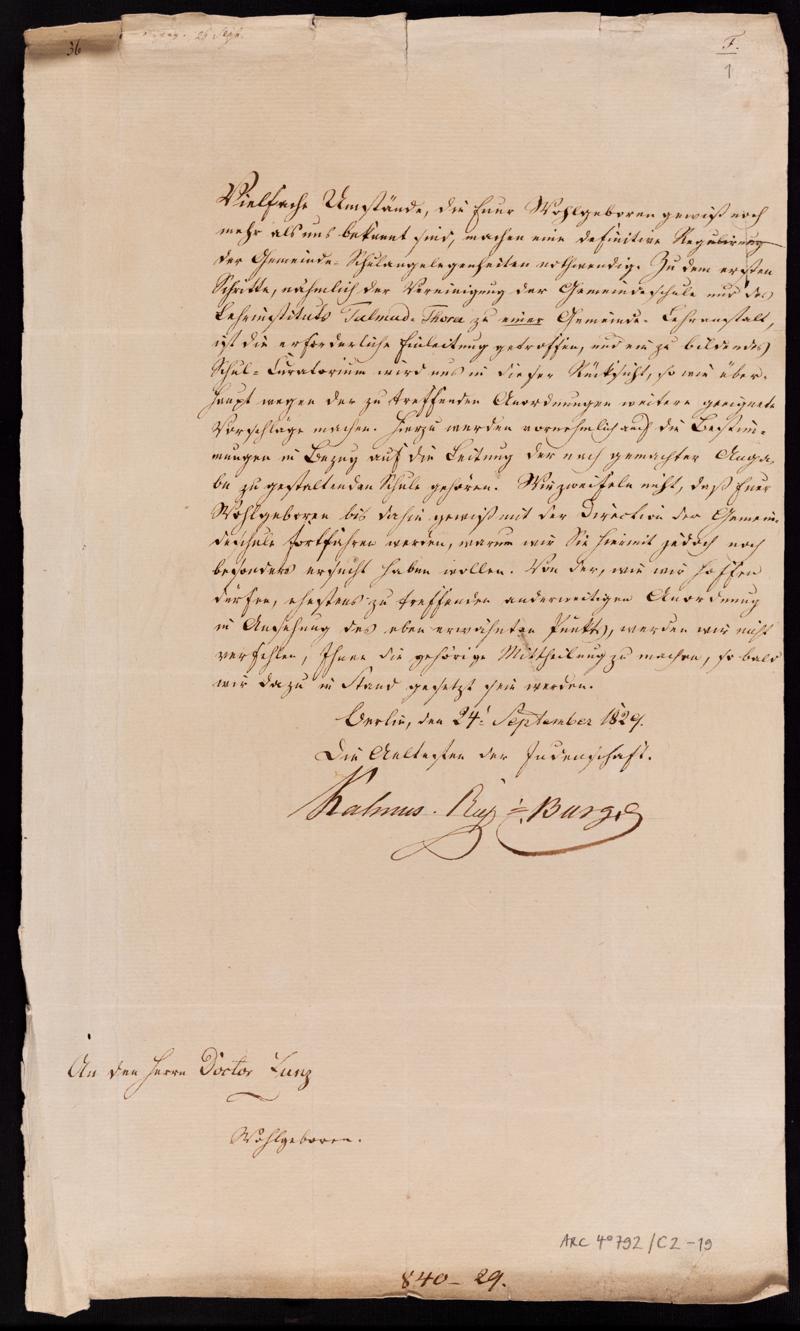 36
26 Sept.
F.
1
Vielfache Umstände, die Euer Wohlgeboren gewiß noch
mehr als uns bekannt sind, machen eine definitive Regulirung
der Gemeinde-Schulangelegenheiten nothwendig. Zu dem ersten
Schritte, nähmlich der Vereinigung der Gemeindeschule und des
Lehrinstituts Talmud-Thora zu einer Gemeinde-Lehranstalt,
ist die erforderliche Einleitung getroffen, und ein zu bildendes
Schul-Curatorium wird uns in dieser Rücksicht, so wie über-
haupt wegen der zu treffenden Anordnungen weitere geeignete
Vorschläge machen. Hierzu werden vornehmlich auch die Bestim-
mungen in Bezug auf die Leitung der nach gemachter Anga-
be zu gestaltenden Schule gehören. Wir zweifeln nicht, daß Euer
Wohlgeboren bis dahin gewiß mit der Direction der Gemein-
deschule fortfahren werden, warum wir Sie hiermit jedoch noch
besonders ersucht haben wollen. Von der, wie wir hoffen
dürfen, ehestens zu treffenden anderweitigen Anordnung
in Ansehung des eben erwähnten Punkts, werden wir nicht
verfehlen, Ihnen die gehörige Mittheilung zu machen, so bald
wir dazu in Stand gesetzt sein werden.
Berlin, den 24t September 1829.
Die Aeltesten der Judenschaft.
Kalmus. Burg
An den Herrn Doctor Zunz
Wohlgeboren.
ARC 4°792/C2-19
840-29.